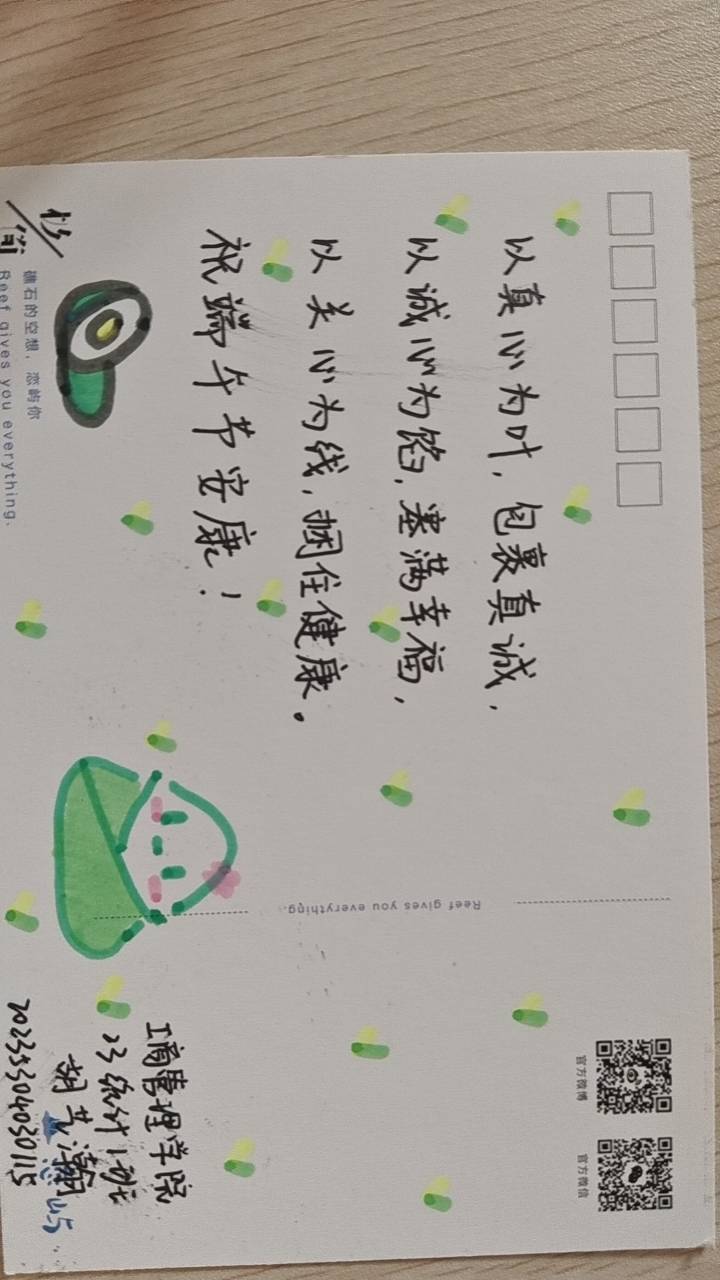 以真心为叶，包裹真诚，
以诚心为馅，塞满幸福，
以关心为线，捆住健康。
祝端午节安康！
礁石的空想，恋屿你
Reef gives you everything.
Reef gives you everything.
官方微博
官方微信
工商管理学院
23统计1班
20233304030115